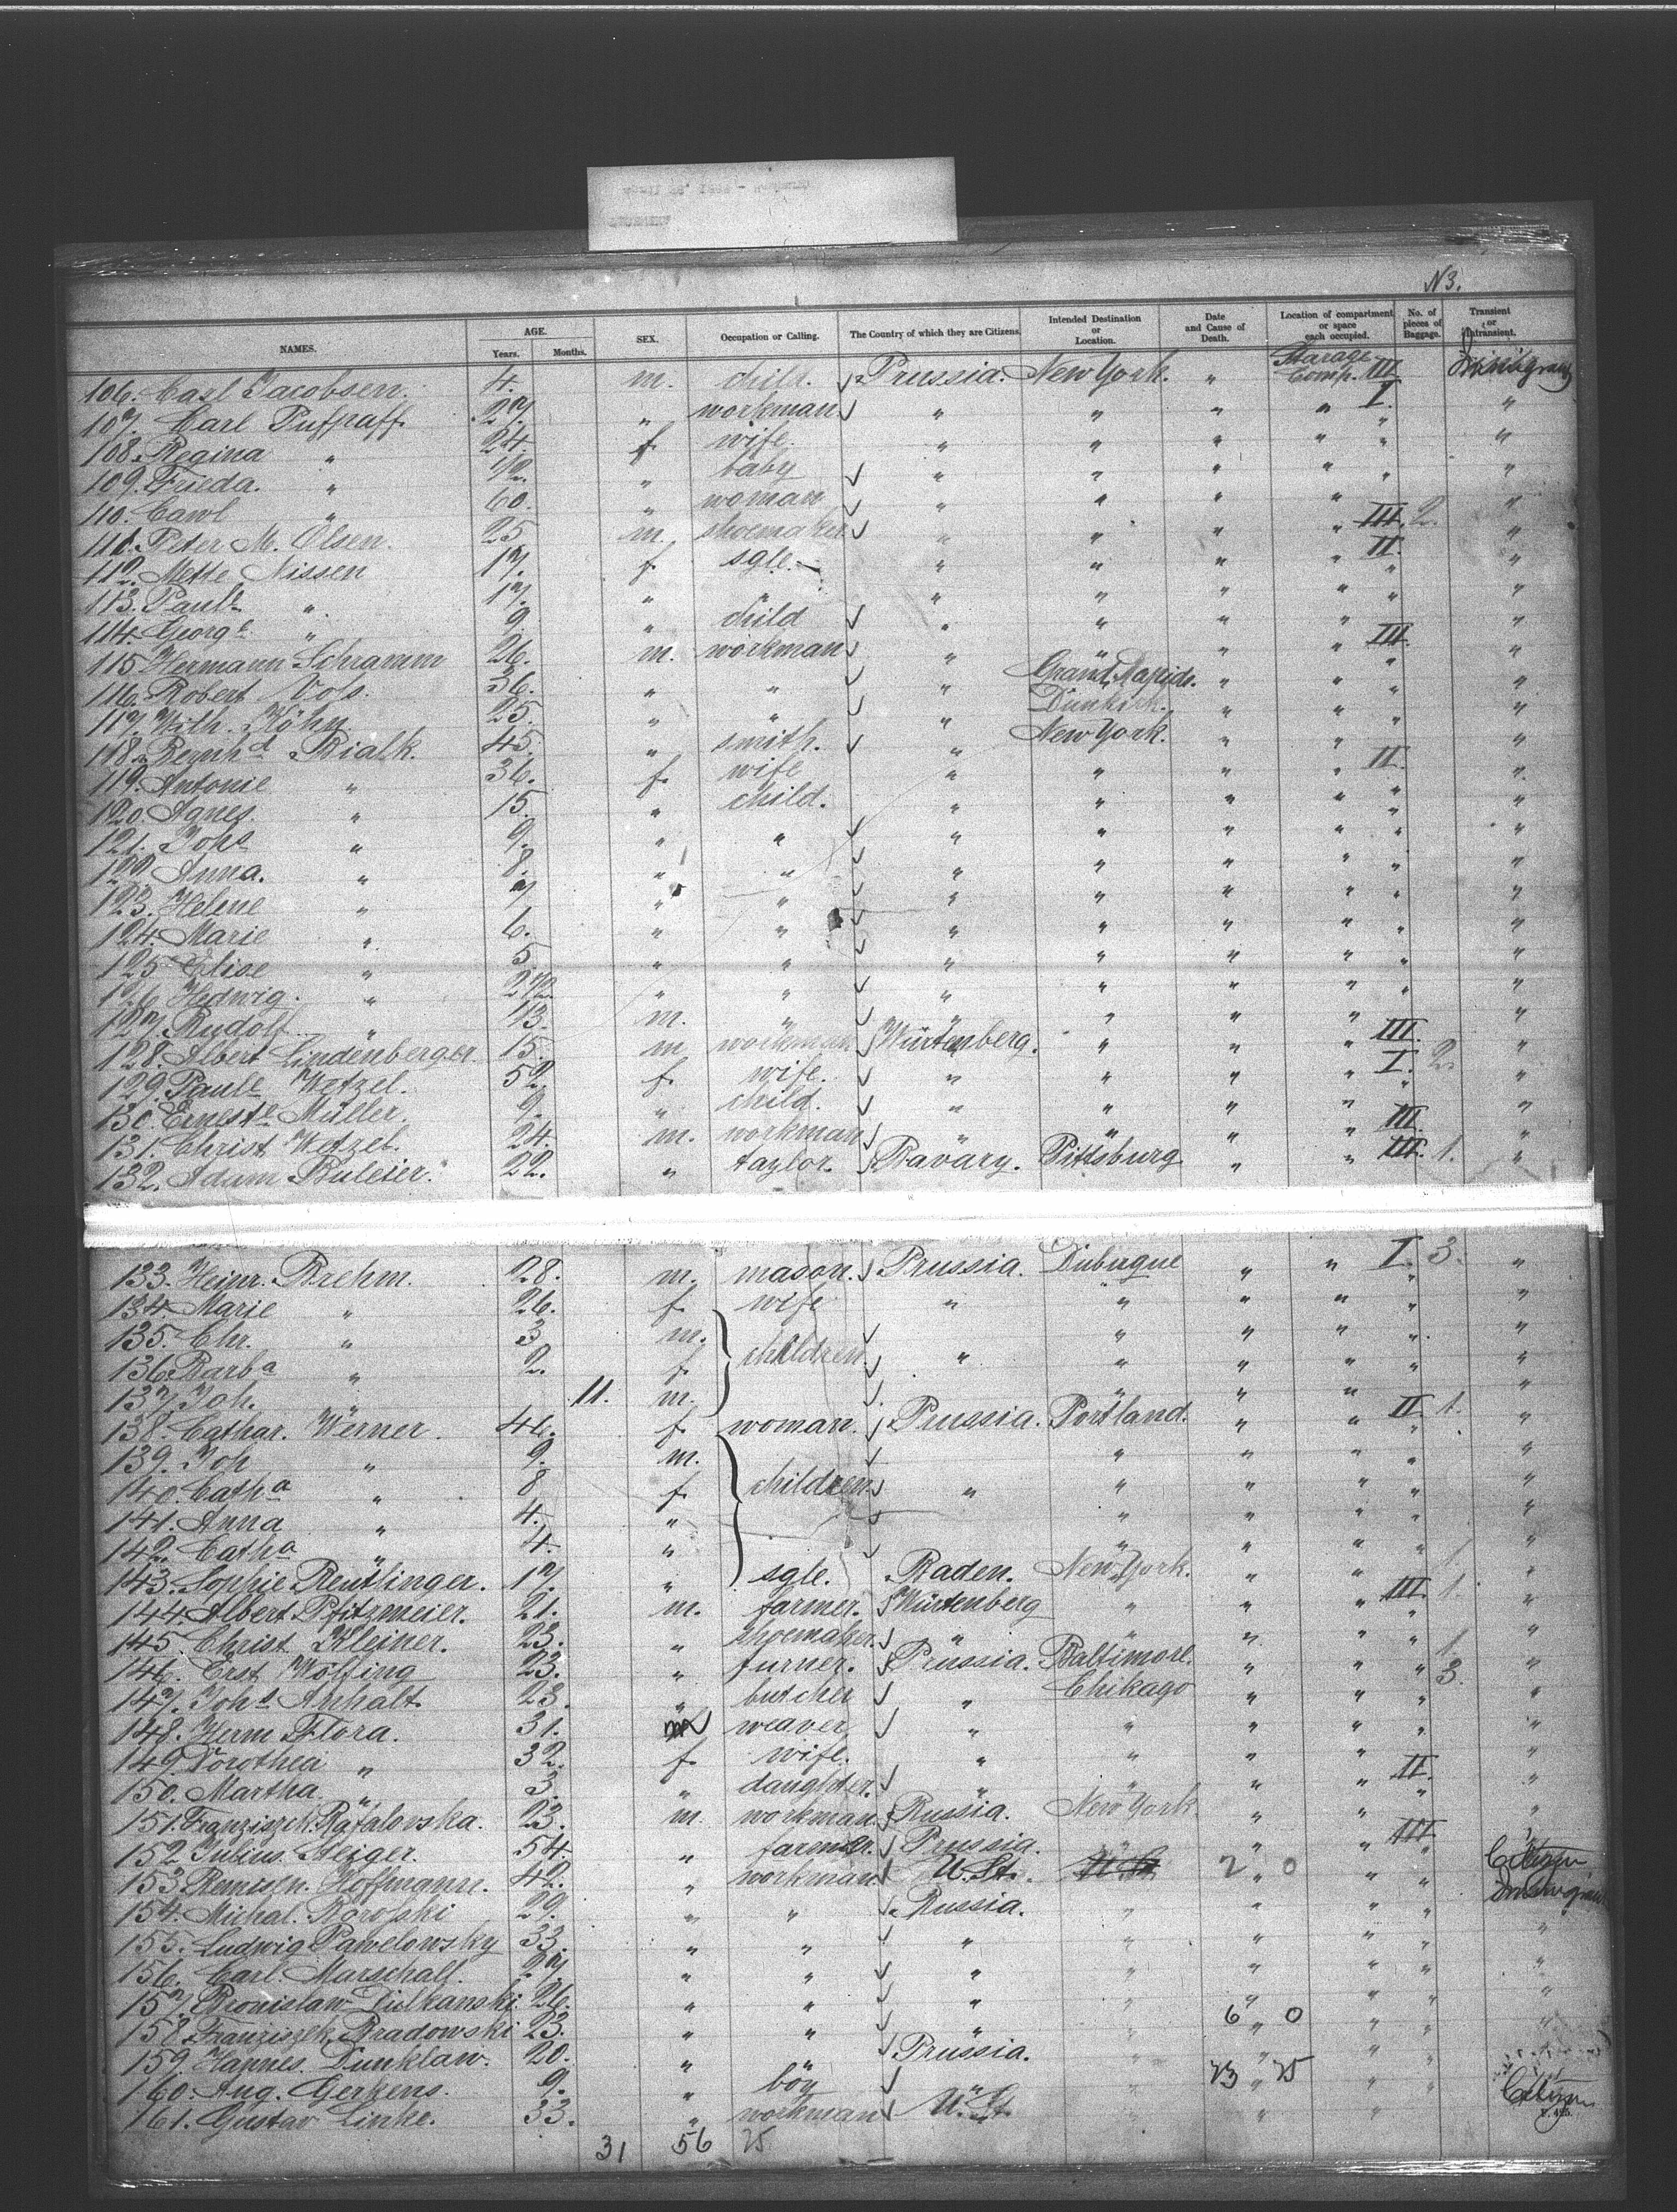 N3.
NAMES. AGE. Years. Months. SEX. Occupation or Calling. The Country of which they are Citizens. Intended Destination or Location. Date and Cause of Death. Location of compartment or space each occupied. No. of pieces of Baggage. Transient or Intransient.
106. Carl Jacobsen. 4. m. child. Prussia. New York. " Starage Comp. III
107. Carl Pufpaff. 27. " workman " " " " I. "
108. Regina " 24. f. wife. " " " " " "
109. Frieda. " 1/2. " baby " " " " " "
110. Cawl " 60. " woman " " " " "
111. Peter M. Olsen. 25 m. shoemaker " " " " III. 2. "
112. Mette Nissen 17. f. sgle. " " " " II. "
113. Paule " 17. " " " " " " " "
114. George " 9. " child " " " " " "
115 Hermann Schramm 26. m. workman " " " " III. "
116. Robert Vols. 36. " " " Grand Rapids. " " " "
117. Wilh. Köhn 25. " " " Dunkirk. " " " "
118. Bernhd Bialk. 45. " smith. " New York. " " "
119. Antonie " 36. f. wife " " " " II. "
120. Agnes. " 15. " child. " " " " " "
121. Johs " 9. " " " " " " " "
122 Anna. " 8. " " " " " " " "
123. Helene " 7 " " " " " " " "
124. Marie " 6. " " " " " " " "
125 Elise " 5. " " " " " " " "
126 Hedwig. " " " " " " " " "
127. Rudolf " m. " " " " " "
128. Albert Lindenberger. 15. m workman Würtenberg. " " " III. "
129. Paule Wetzel. 52. f. wife. " " " " I. 2. "
130. Erneste Müller. 9. " child. " " " " " "
131. Christ. Wetzel. 24. m. workman " " " " III. "
132. Adam Buleier. 22. " taylor. Bavary. Pittsburg " " III. 1. "
133. Heinr. Brehm. 28. m. mason. Prussia. Dubuque " " I. 3. "
134. Marie " 26. f. wife " " " " " "
135. Chr. " 3 m. " " " " "
136. Barba " 2. f. children. " " " " " "
137. Joh. " 11. m. " " " "
138. Cathar. Werner. 46. f. woman. Prussia. Portland. " " II. 1. "
139. Joh " 9. m. " " " " "
140. Catha " 8 f. children " " " " " "
141. Anna " 4. " " " " " "
142. Catha " 4. " " " " " "
143. Sophie Reutlinger. 17. " sgle. Baden. New York. " " 1. "
144. Albert Pfitzmeier. 21. m. farmer. Würtenberg " " " III. 1. "
145. Christ. Kleiner. 23. " shoemaker. " " " " " "
146. Erst. Wölfing 23. " turner. Prussia. Baltimore. " " " 1. "
147. Johs Anhalt. 23. " butcher " Chikago " " " 3. "
148. Herm Flora. 31. m weaver " " " " " "
149. Dorothea " 32. f. wife. " " " " "
150. Martha. " 3. " daughter. " " " " II. "
151. Franziszek Rafalovska. 23. m. workman. Russia. New York " " " "
152 Julius. Steiger. 54. " farmer. Prussia. " " " III. "
153 Hoffmann. 42. " workman U. St. 2 " 0 " " Citizen
154. Michal. 29. " " Russia. " " " "
155. Ludwig Pawelowsky 33. " " " " " " " "
156. Carl Marschall. 27. " " " " " " " "
157. Bronislaw 26. " " " " " " " "
158. Franziszek Bradowski 23. " " " 6 " 0 " "
159. Hannes. Dunklaw. 20. " " Prussia. " " " "
160. Aug. Gerkens. 9. " boy " " 23 " 25 " "
161. Gustav Linke. 33. " workman U. St. " " " " Citizen
31 56 25